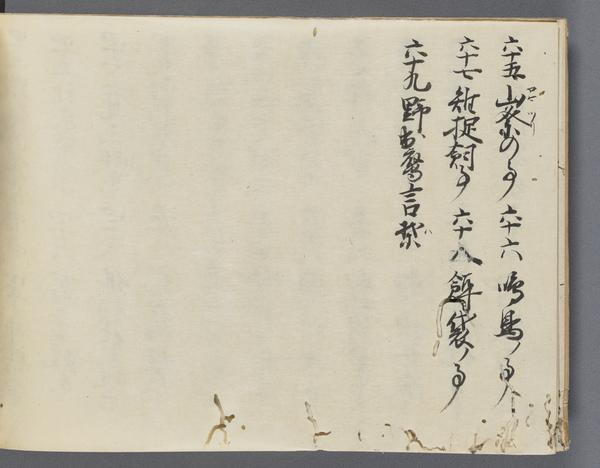 六十五 山祭の事 六十六 鳴鳥ノ事
六十七 雉捉飼事 六十八 餌袋ノ事
六十九 野出鷹言葉